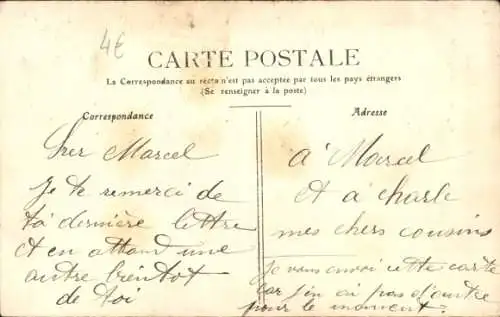 4€
CARTE POSTALE
La Correspondance au recto n'est pas acceptée par tous les pays étrangers
(Se renseigner à la poste)
Correspondance
Cher Marcel
Je te remerci de
ta dernière lettre
et en attend une
autre bientot
de toi
Adresse
a Marcel
et a charle
mes chers cousins
je vous envoi cette carte
car j'en ai pas d'autre
pour le moment.